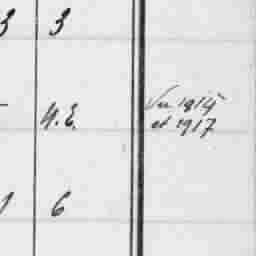 3 3
H.E. Vu 1915
et 1917
6